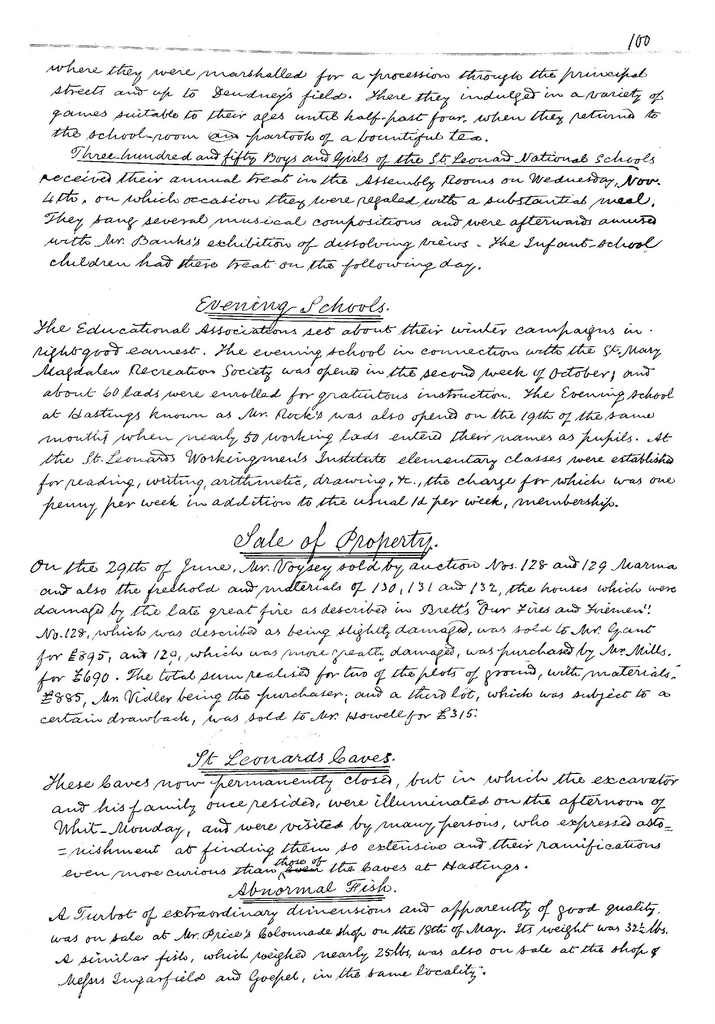 100
where they were marshalled for a procession through the principal
streets and up to Deudney's field. There they indulged in a variety of
games suitable to their ages until half-past four, when they returned to
the school-room an partook of a bountiful tea.
Three-hundred and fifty Boys and Girls of the St. Leonard National Schools
received their annual treat in the Assembly Rooms on Wednesday, Nov.
4th, on which occasion they were regaled with a substantial meal.
They sang several musical compositions and were afterwards amused
with Mr. Banks's exhibition of dissolving views. The Infant-school
children had there treat on the following day.
Evening Schools.
The Educational Associations set about their winter campaigns in
right good earnest. The evening school in connection with the St. Mary
Magdalen Recreation Society was opened in the second week of October; and
about 60 lads were enrolled for gratuitous instruction. The Evening school
at Hastings known as Mr. Rock's was also opened on the 19th of the same
month, when nearly 50 working lads entered their names as pupils. At
the St. Leonards Workingmen's Institute elementary classes were established
for reading, writing, arithmetic, drawing, &c., the charge for which was one
penny per week in addition to the usual 1d per week, membership.
Sale of Property.
On the 29th of June, Mr. Voysey sold by auction Nos. 128 and 129 Marina
and also the freehold and materials of 130, 131 and 132, the houses which were
damaged by the late great fire as described in Brett's "Our Fires and Firemen".
No. 128, which was described as being slightly damaged, was sold to Mr. Gant
for £895, and 129, which was more greatly damaged, was purchased by Mr. Mills.
for £690. The total sum realised for two of the plots of ground, with materials,
£885, Mr. Vidler being the purchaser; and a third lot, which was subject to a
certain drawback, was sold to Mr. Howell for £315.
St Leonards Caves.
These Caves now permanently closed, but in which the excavator
and his family once resided, were illuminated on the afternoon of
Whit-Monday, and were visited by many persons, who expressed asto=
=nishment at finding them so extensive and their ramifications
even more curious than those of the Caves at Hastings.
Abnormal Fish.
A Turbot of extraordinary dimensions and apparently of good quality
was on sale at Mr. Price's Colonnade shop on the 18th of May. Its weight was 32½ lbs.
A similar fish, which weighed nearly 25 lbs, was also on sale at the shop of
Messrs Tugarfield and Goepel, in the same locality.